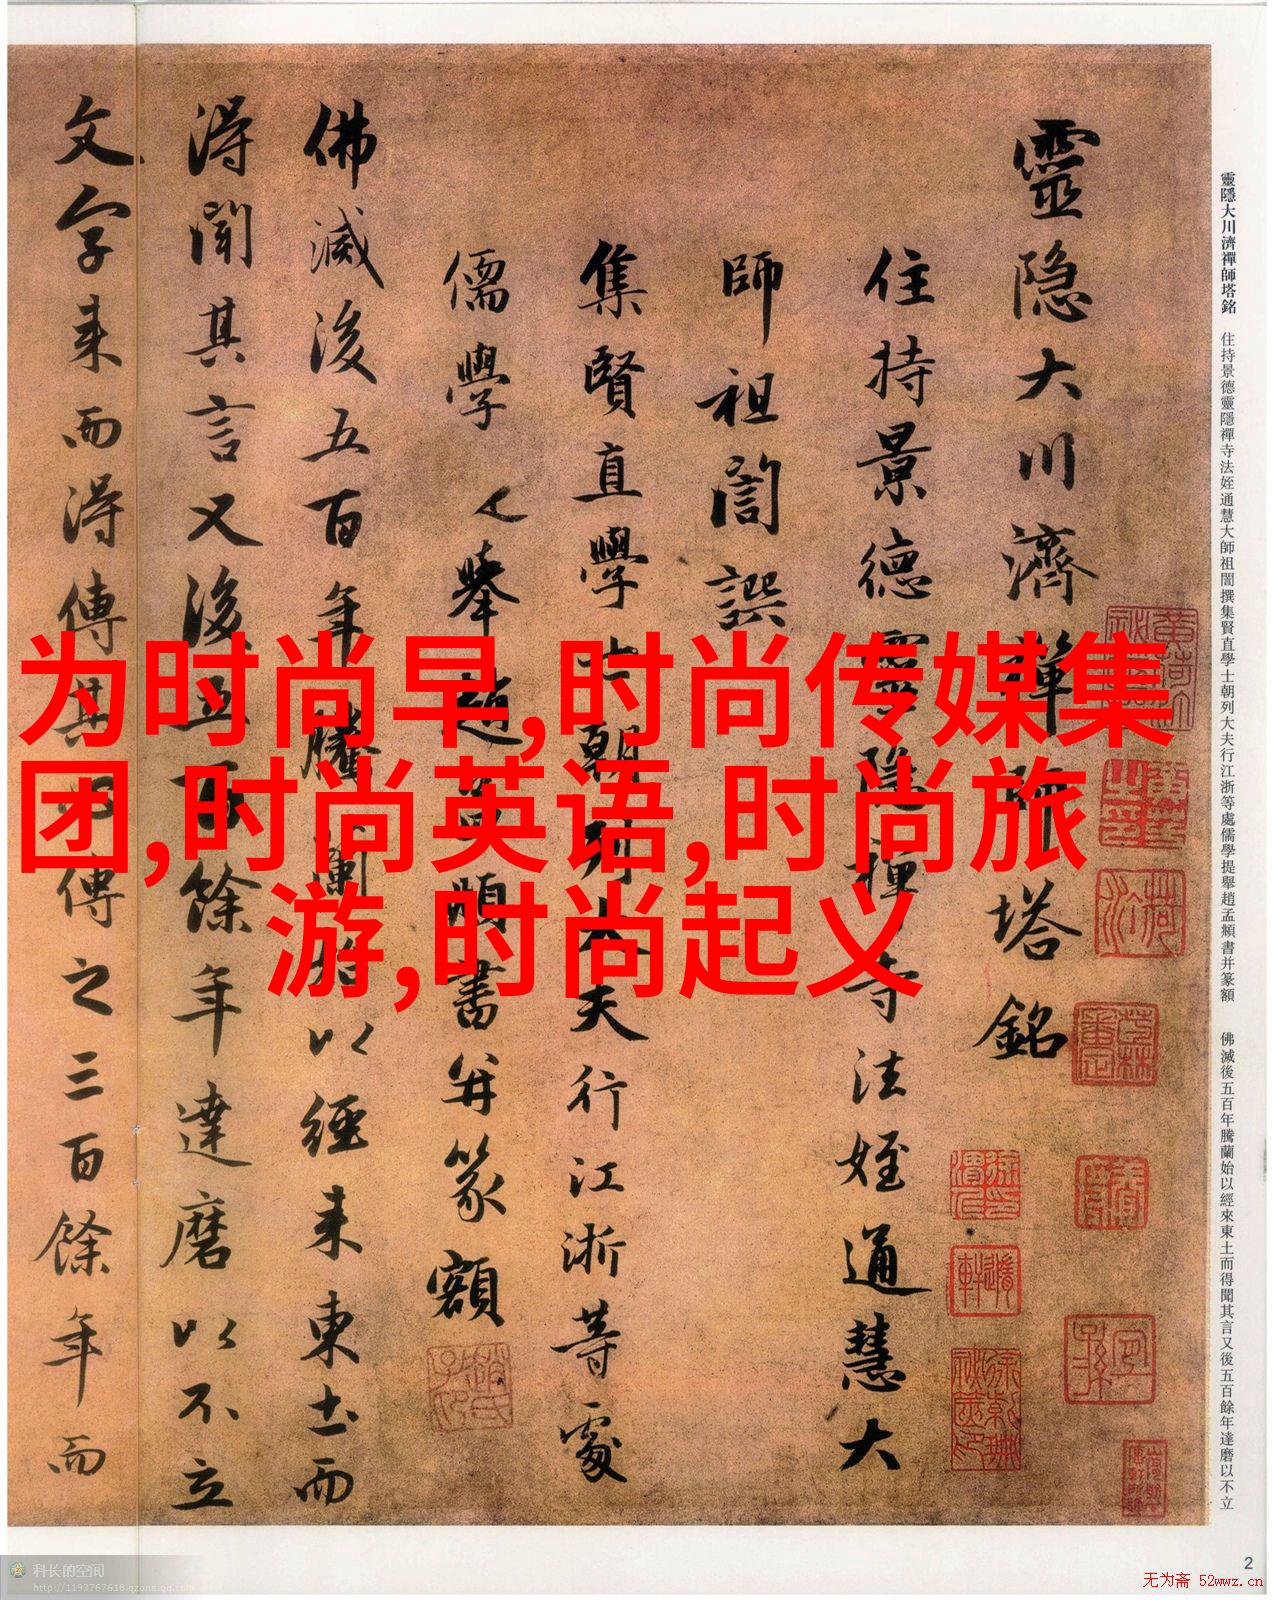 靈隱大川濟禪師塔銘 住持景德靈隱禪寺法姪通慧大師祖誾撰集賢直學士朝列大夫行江浙等處儒學提舉趙孟頫書并篆額 佛滅後五百年騰蘭始以經來東土而得聞其言又後五百餘年達磨以不立
靈隐大川濟禪師塔銘
住持景德靈隐禪寺法姪通慧大
師祖誾譔
集賢直學士朝列大夫行江浙等處
儒學提舉趙孟頫書并篆額
佛滅後五百年騰蘭始以經来東土而
淂聞其言又後五百餘年達磨以不立
文字来而淂傳其所傳之三百餘年而
为时尚早,时尚传媒集
团,时尚英语,时尚旅
游,时尚起义
科长的空间
http://1193767618.qzone.qq.com
2
无为斋 52wwz.cn